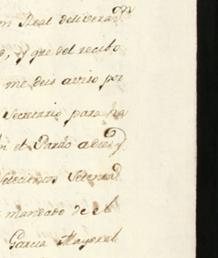 Real deliveraz.on
y que del recibo
me deis aviso por
Secretario para
en el Pardo a diez y
Setecientos Setenta
mandado de el
Garcia Mayoral